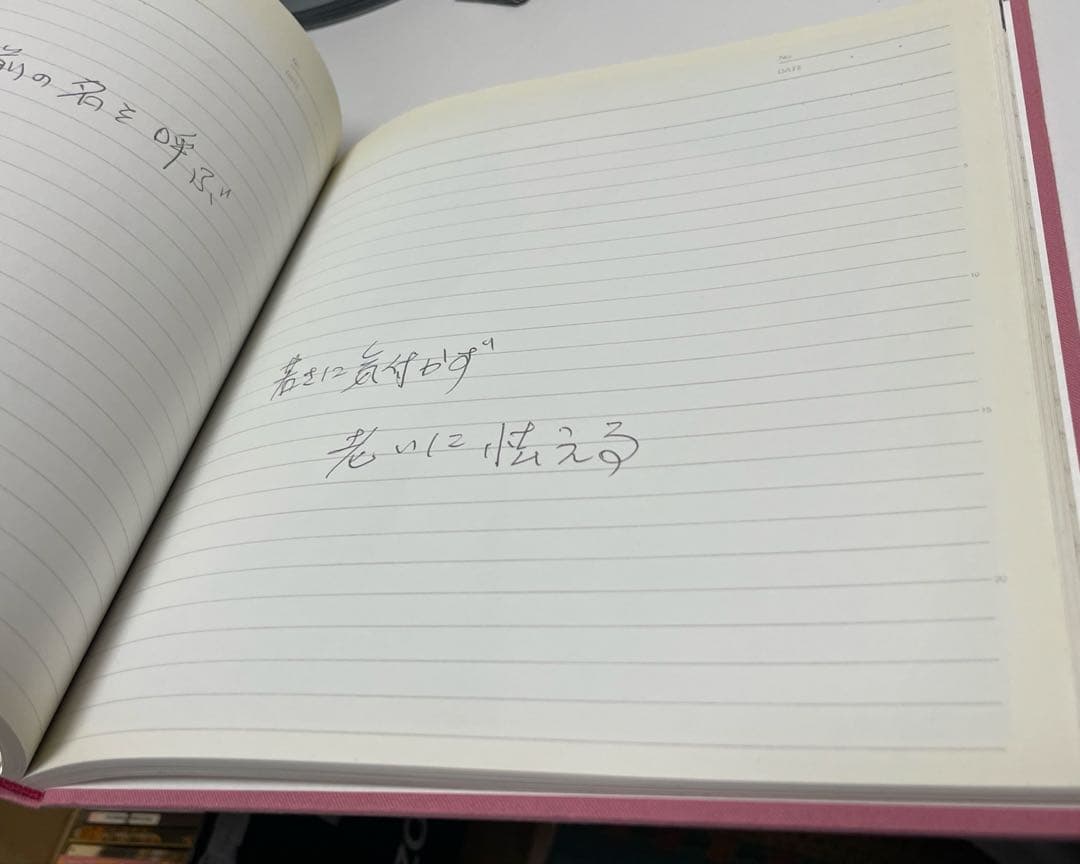 前の名を呼ぶ
No.
DATE
5
10
若さに気付かず
15
老いに怯える
20